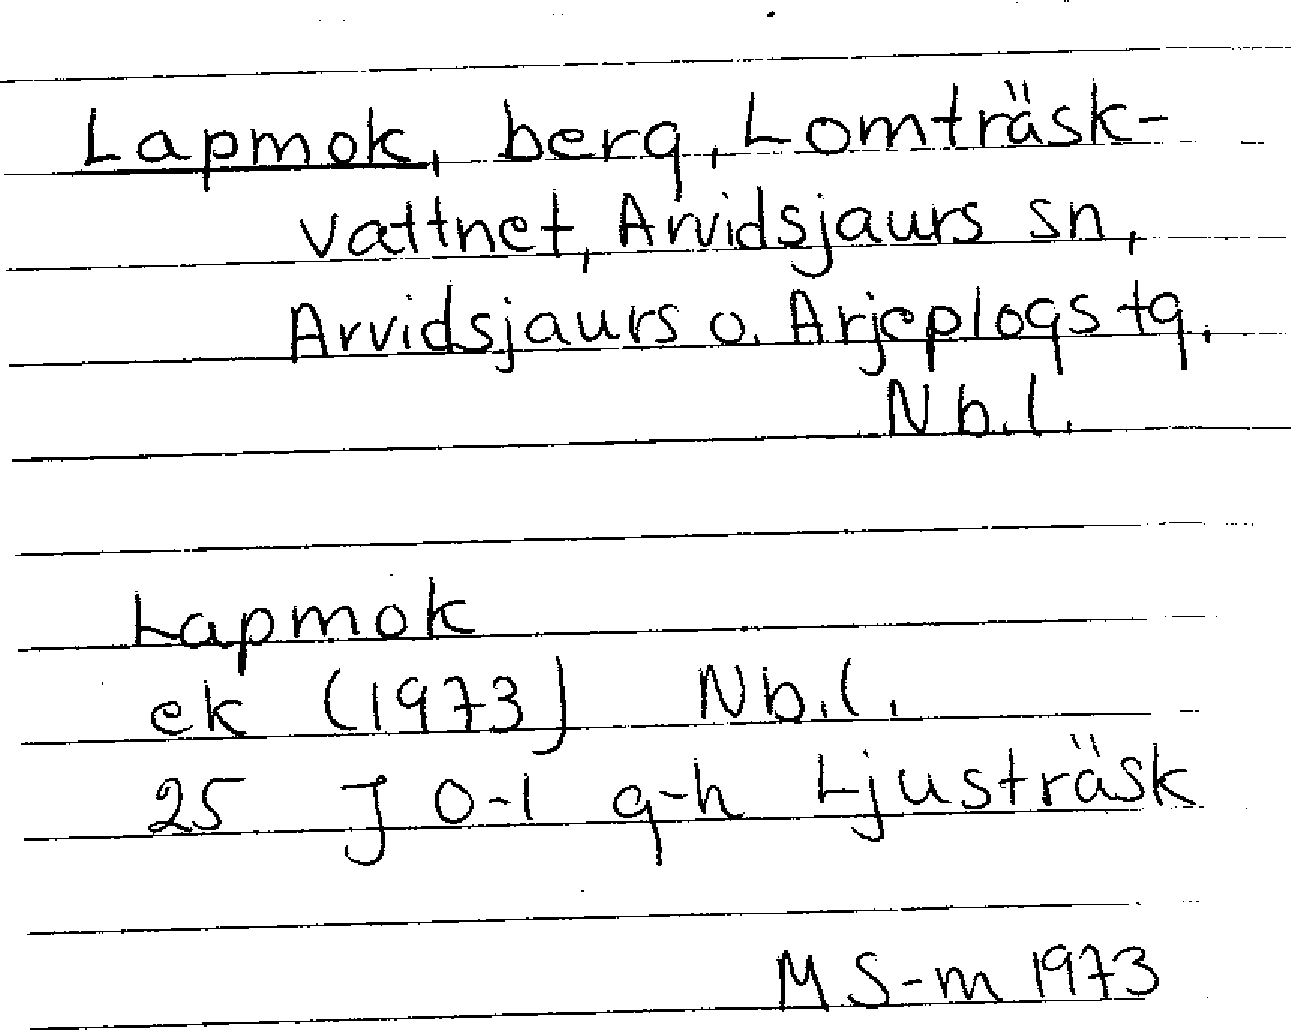 Lapmok, berg, Lomträsk-
vattnet, Arvidsjaurs sn,
Arvidsjaurs o. Arjeplogs tg.
Nb.l.
Lapmok
ek (1973) Nb.l.
25 J 0-1 g-h Ljusträsk
M S-m 1973